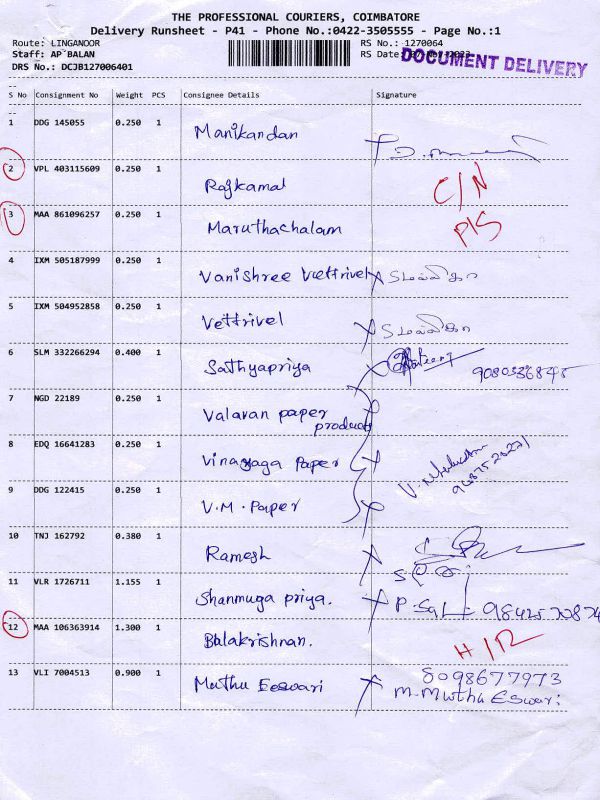 THE PROFESSIONAL COURIERS, COIMBATORE
Delivery Runsheet - P41 - Phone No.:0422-3505555 - Page No.:1
Route: LINGANOOR RS No.: 1270064
Staff: AP BALAN RS Date:
DOCUMENT DELIVERY
DRS No.: DCJB127006401
S No Consignment No Weight PCS Consignee Details Signature
1 DDG 145055 0.250 1 Manikandan
2 VPL 403115609 0.250 1 Rajkamal C/N
3 MAA 861096257 0.250 1 Maruthachalam P/S
4 IXM 505187999 0.250 1 Vanishree Vettrivel
5 IXM 504952858 0.250 1 Vettrivel
6 SLM 332266294 0.400 1 Sathyapriya
7 NGD 22189 0.250 1 Valavan paper
products
8 EDQ 16641283 0.250 1 Vinayaga Paper
9 DDG 122415 0.250 1 V.M. Paper
10 TNJ 162792 0.380 1 Ramesh
11 VLR 1726711 1.155 1 Shanmuga priya.
12 MAA 106363914 1.300 1 Balakrishnan.
13 VLI 7004513 0.900 1 Muthu Eeswari 8098677973
M. Muthu Eswari